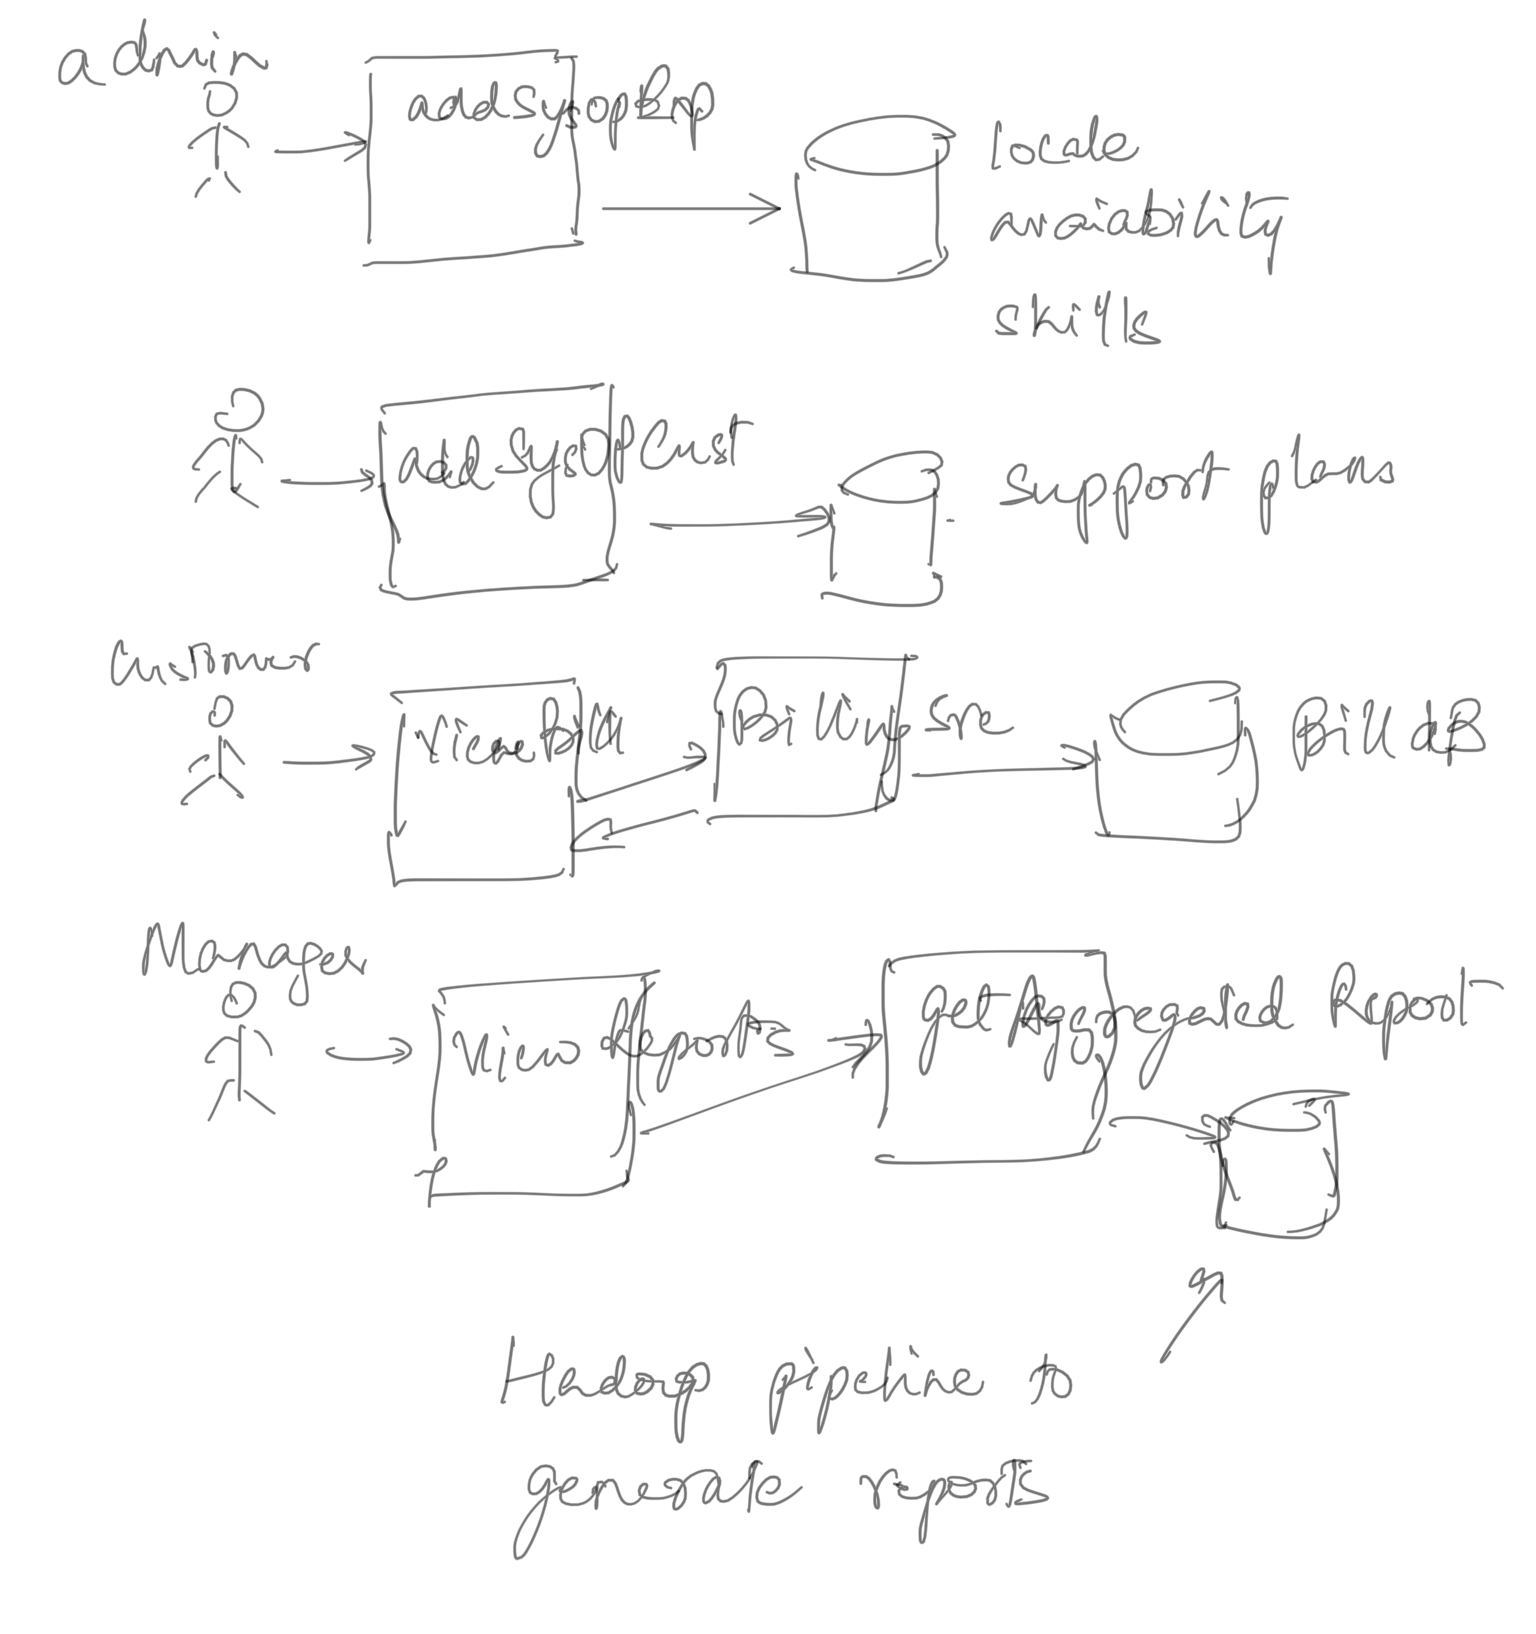 admin
addSysopEmp
locale
avaiability
skills
addSysOPCust
support plans
Customer
ViewBill
Billing Svc
Bill dB
Manager
View Reports
getAggregated Report
Hadoop pipeline to
generate reports